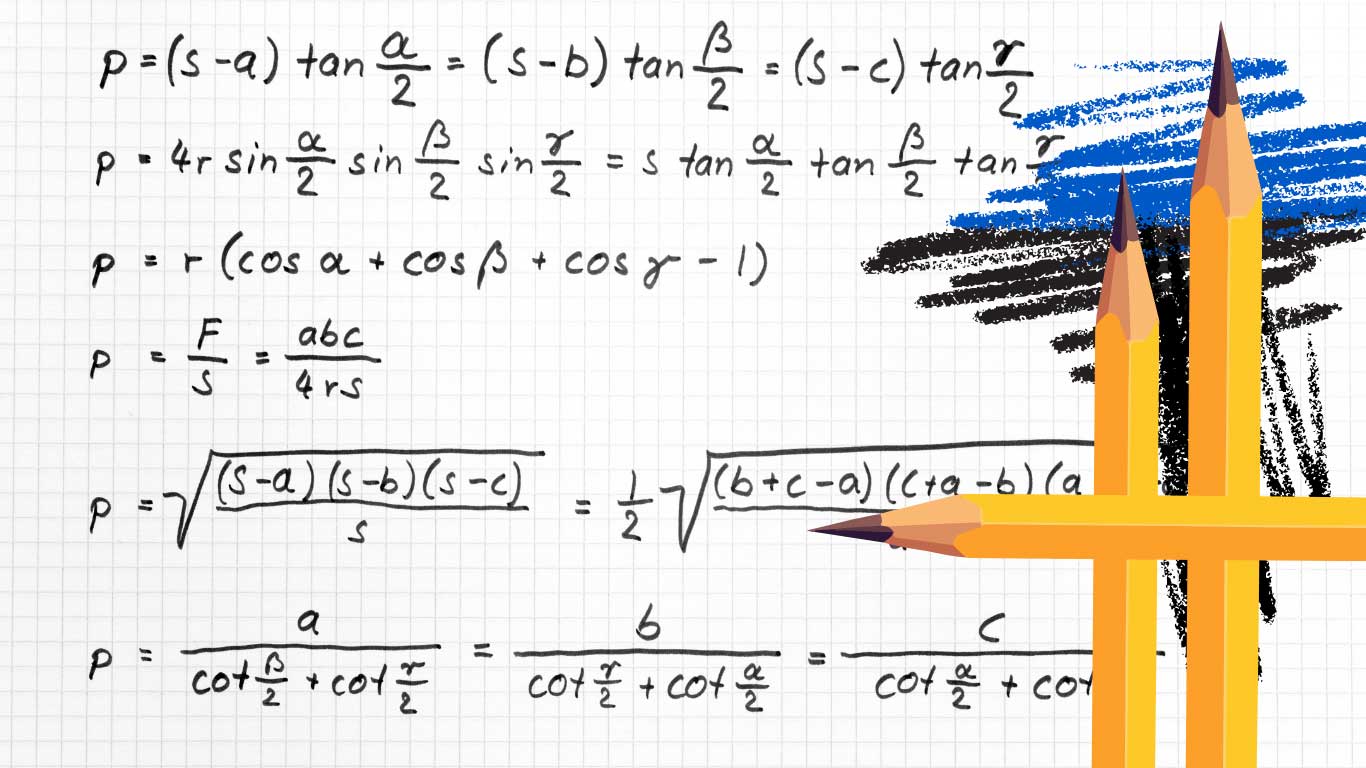 p = (s-a) tan α/2 = (s-b) tan β/2 = (s-c) tan γ/2
p = 4r sin α/2 sin β/2 sin γ/2 = s tan α/2 tan β/2 tan γ
p = r (cos α + cos β + cos γ - 1)
p = F/s = abc/4rs
p = √((s-a)(s-b)(s-c)/s) = 1/2 √((b+c-a)(c+a-b)(a
p = a/(cot β/2 + cot γ/2) = b/(cot γ/2 + cot α/2) = c/(cot α/2 + cot